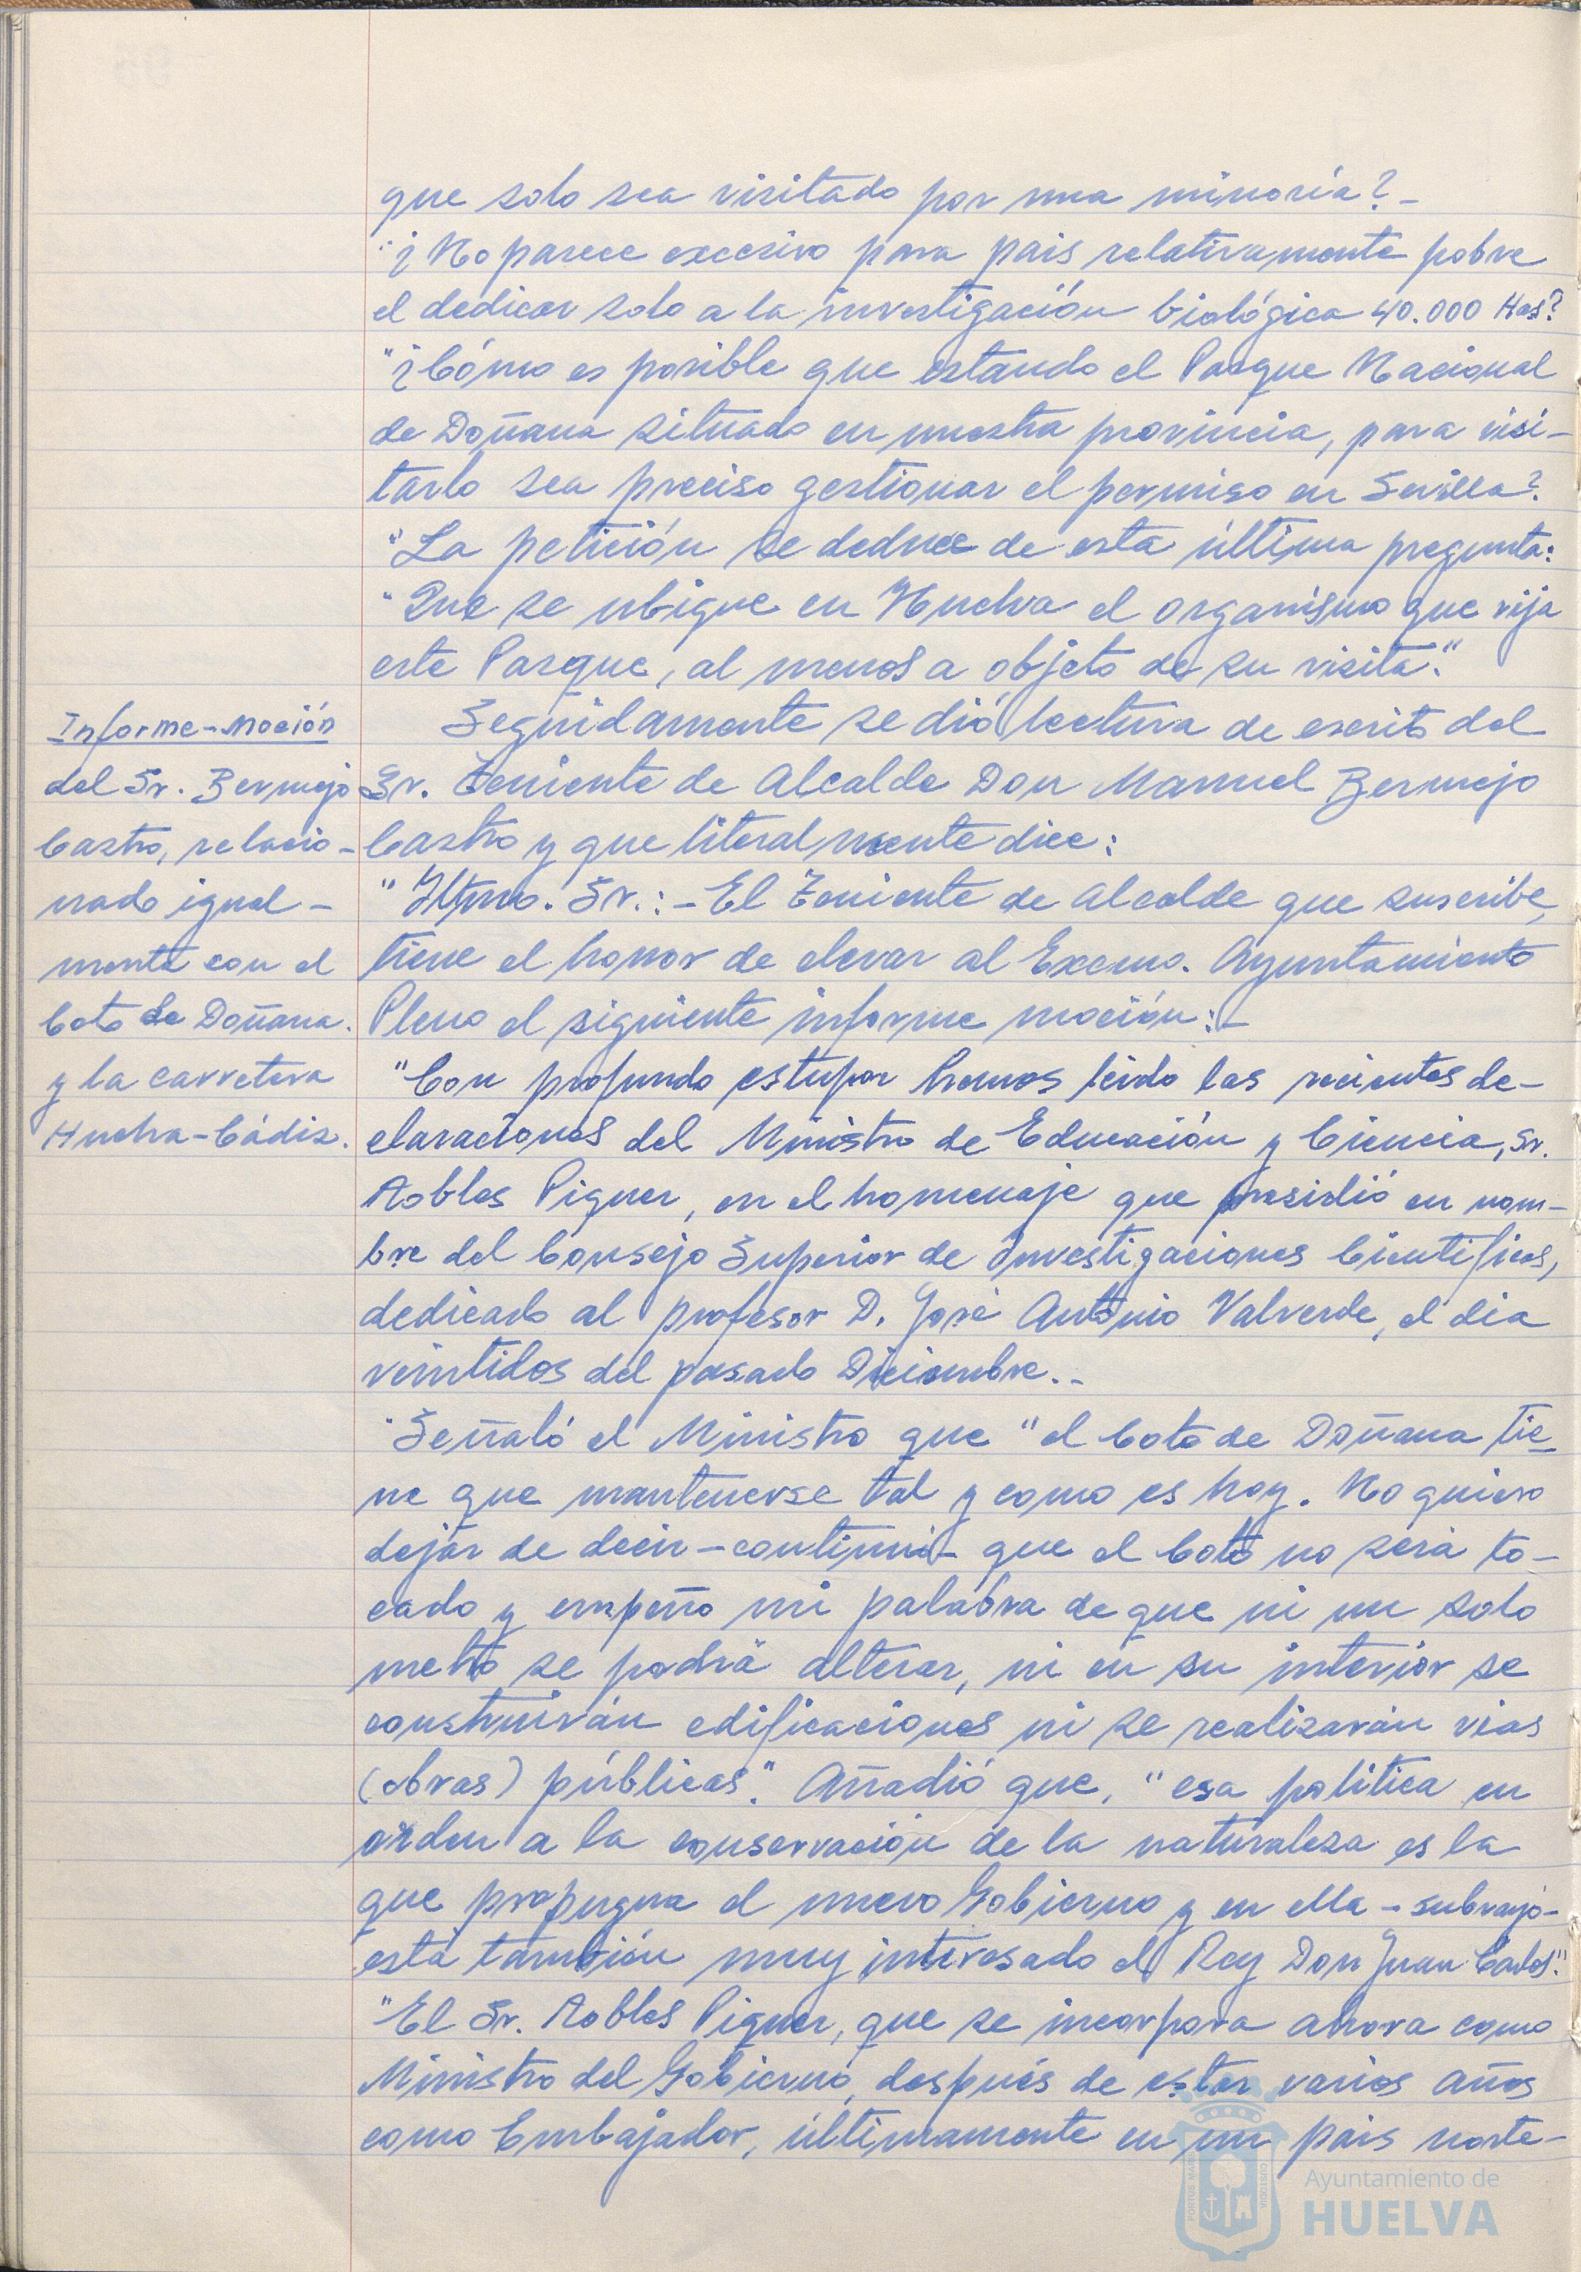 que solo sea visitado por una minoría?-
"¿No parece excesivo para pais relativamente pobre
el dedicar solo a la investigación biológica 40.000 Has?
"¿Cómo es posible que estando el Parque Nacional
de Doñana situado en nuestra provincia, para visi-
tarlo sea preciso gestionar el permiso en Sevilla?.
"La petición se deduce de esta última pregunta:
"Que se ubique en Huelva el organismo que rija
este Parque, al menos a objeto de su visita."
Informe-moción
del Sr. Bermejo
Castro, relacio-
nado igual-
mente con el
Coto de Doñana.
y la carretera
Huelva-Cádiz.
Seguidamente se dió lectura de escrito del
Sr. Teniente de Alcalde Don Manuel Bermejo
Castro y que literalmente dice:
"Iltmo. Sr.:-El Teniente de Alcalde que suscribe,
tiene el honor de elevar al Excmo. Ayuntamiento
Pleno el siguiente informe moción:-
"Con profundo estupor hemos leido las recientes de-
claraciones del Ministro de Educación y Ciencia, Sr.
Robles Piquer, en el homenaje que presidió en nom-
bre del Consejo Superior de Investigaciones Cientificas,
dedicado al profesor D. José Antonio Valverde, el dia
veintidos del pasado Diciembre.-
"Señaló el Ministro que "el Coto de Doñana tie-
ne que mantenerse tal y como es hoy. No quiero
dejar de decir-continuó- que el Coto no será to-
cado y empeño mi palabra de que ni un solo
metro se podrá alterar, ni en su interior se
construirán edificaciones ni se realizarán vias
(obras) públicas". Añadió que, "esa politica en
orden a la conservación de la naturaleza es la
que propugna el nuevo Gobierno y en ella - subrayó-
está también muy interesado el Rey Don Juan Carlos".
"El Sr. Robles Piquer, que se incorpora ahora como
Ministro del Gobierno, después de estar varios años
como Embajador, últimamente en un pais norte-
PORTUS MARIS
CUSTODIA
Ayuntamiento de
HUELVA